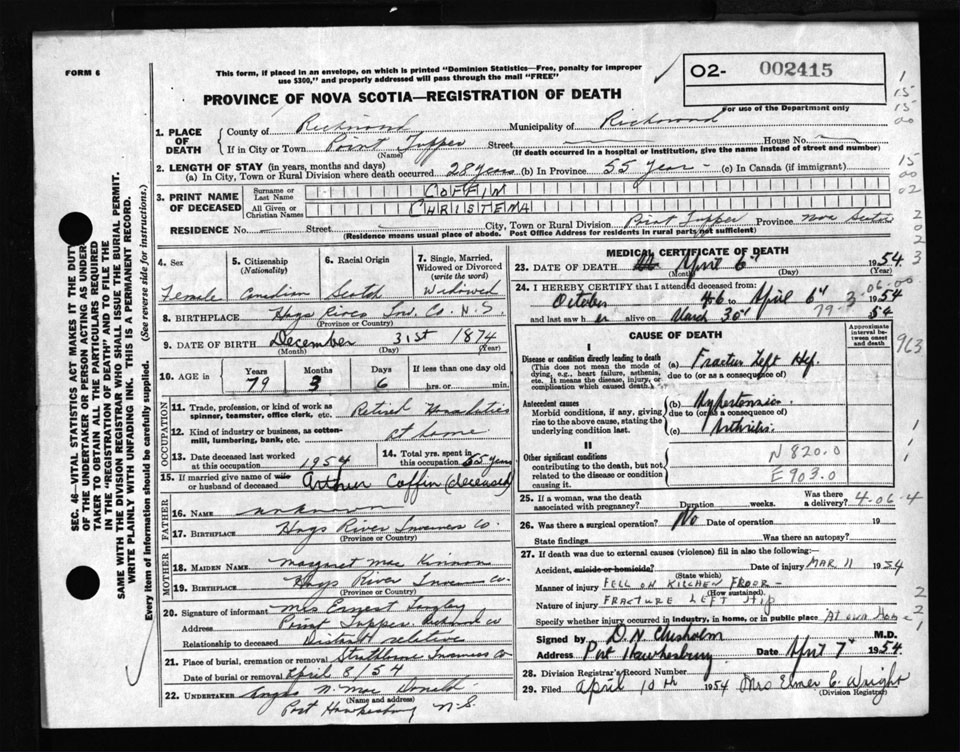 FORM 6
This form, if placed in an envelope, on which is printed "Dominion Statistics—Free, penalty for improper
use $300," and properly addressed will pass through the mail "FREE"
O2- 002415
For use of the Department only
PROVINCE OF NOVA SCOTIA—REGISTRATION OF DEATH
1. PLACE OF DEATH
County of Richmond Municipality of Richmond
If in City or Town Point Tupper Street — House No. —
(Name) (If death occurred in a hospital or institution, give the name instead of street and number)
2. LENGTH OF STAY (in years, months and days)
(a) In City, Town or Rural Division where death occurred 28 years (b) In Province 55 Years - (c) In Canada (if immigrant)
3. PRINT NAME OF DECEASED
Surname or Last Name COFFIN
All Given or Christian Names CHRISTENA
RESIDENCE No. — Street — City, Town or Rural Division Point Tupper Province Nova Scotia
(Residence means usual place of abode. Post Office Address for residents in rural parts not sufficient)
4. Sex
Female
5. Citizenship
(Nationality)
Canadian
6. Racial Origin
Scotch
7. Single, Married, Widowed or Divorced
(write the word)
Widowed
8. BIRTHPLACE Hays River Inv. Co. N.S.
(Province or Country)
9. DATE OF BIRTH December 31st 1874
(Month) (Day) (Year)
10. AGE in
Years Months Days If less than one day old
79 3 6 hrs. or min.
OCCUPATION
11. Trade, profession, or kind of work as
spinner, teamster, office clerk, etc. Retired Household duties
12. Kind of industry or business, as cotton-
mill, lumbering, bank, etc. at home
13. Date deceased last worked
at this occupation 1954
14. Total yrs. spent in
this occupation 65 years
15. If married give name of wife
or husband of deceased Arthur Coffin (deceased)
FATHER
16. Name unknown
17. Birthplace Hays River Inverness Co.
(Province or Country)
MOTHER
18. Maiden Name Margaret Mac Kinnon
19. Birthplace Hays River Inver. co.
(Province or Country)
20. Signature of informant Mrs Ernest Langley
Address Point Tupper Richmond co
Relationship to deceased Distant relative
21. Place of burial, cremation or removal Strathlorne Inverness Co
Date of burial or removal April 8/54
22. UNDERTAKER Angus N. Mac Donald
(Name and address)
Port Hawkesbury N.S.
MEDICAL CERTIFICATE OF DEATH
23. DATE OF DEATH April 6th 1954
(Month) (Day) (Year)
24. I HEREBY CERTIFY that I attended deceased from:
October to April 6th 1954
and last saw her alive on March 30th 54
79-3-06-00
CAUSE OF DEATH
Approximate interval between onset and death
I
Disease or condition directly leading to death
(This does not mean the mode
of dying, e.g., heart failure, asthenia,
etc. It means the disease, injury, or
complication which caused death.)
(a) Fracture Left Hip.
due to (or as a consequence of)
Antecedent causes
Morbid conditions, if any, giving
rise to the above cause, stating the
underlying condition last.
(b) Hypertension.
due to (or as a consequence of)
(c) Arthritis.
II
Other significant conditions
contributing to the death, but not
related to the disease or condition
causing it.
N 820.0
E 903.0
963
25. If a woman, was the death
associated with pregnancy? Duration weeks. Was there a delivery? 4-06-4
26. Was there a surgical operation? No Date of operation 19
State findings Was there an autopsy?
27. If death was due to external causes (violence) fill in also the following:
Accident, suicide or homicide? Date of injury MAR 11 1954
(State which)
Manner of injury FELL ON KITCHEN FLOOR -
(How sustained)
Nature of injury FRACTURE LEFT HIP
Specify whether injury occurred in industry, in home, or in public place AT OWN HOME
Signed by D. N. Chisholm M.D.
Address Port Hawkesbury Date April 7th 1954.
28. Division Registrar's Record Number
29. Filed April 10th 1954 Mrs Elmer C. Wright
(Division Registrar)
SEC. 46—VITAL STATISTICS ACT MAKES IT THE DUTY
OF THE UNDERTAKER OR PERSON ACTING AS UNDER-
TAKER TO OBTAIN ALL THE PARTICULARS REQUIRED
IN THE "REGISTRATION OF DEATH" AND TO FILE THE
SAME WITH THE DIVISION REGISTRAR WHO SHALL ISSUE THE BURIAL PERMIT.
WRITE PLAINLY WITH UNFADING INK. THIS IS A PERMANENT RECORD.
Every item of information should be carefully supplied. (See reverse side for instructions.)